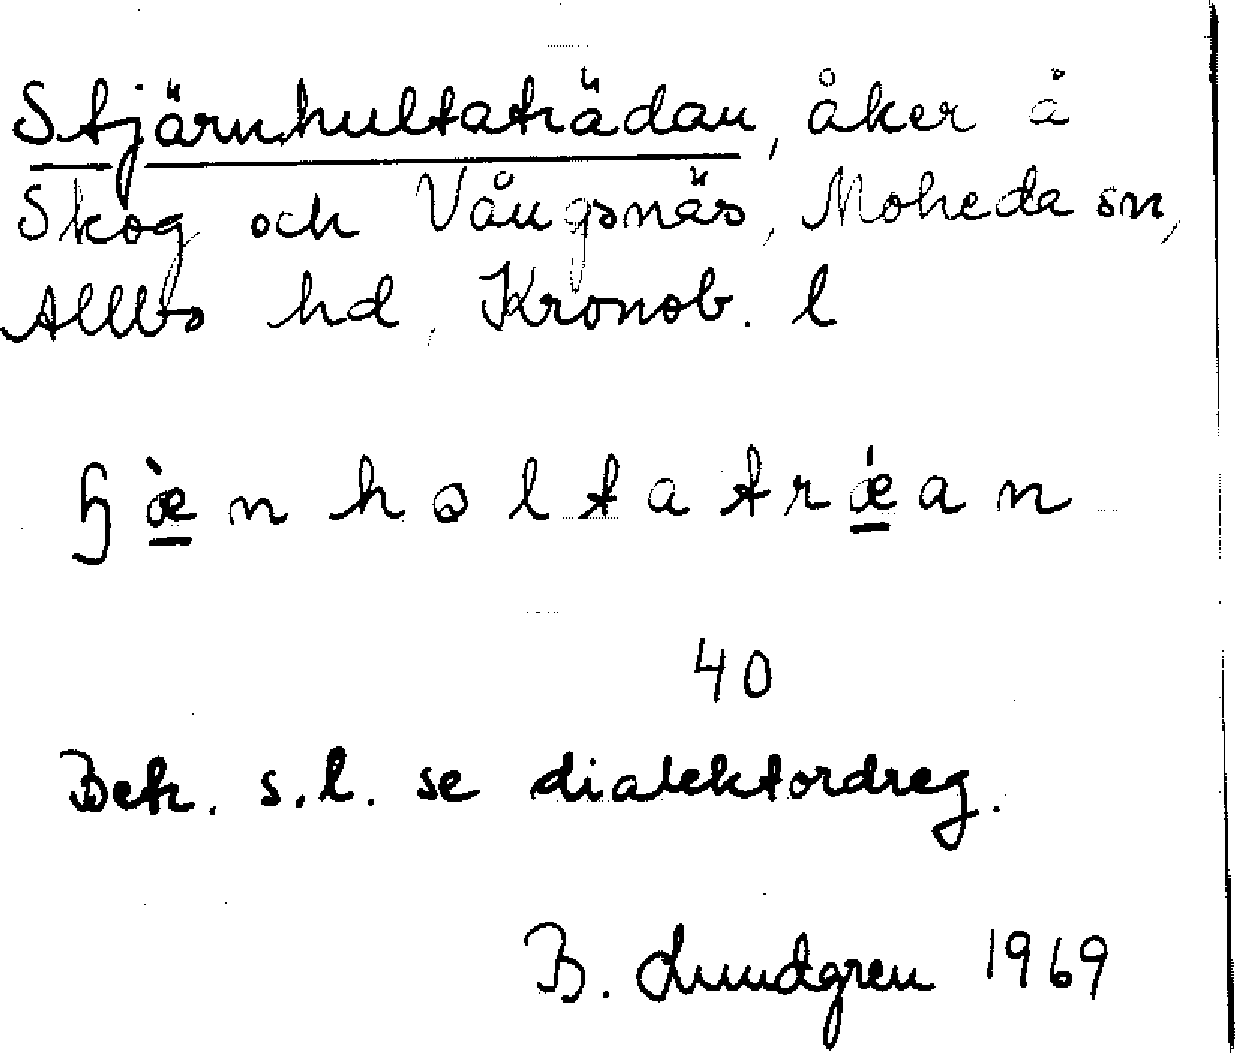 Stjärnhultaträdan, åker å
Skog och Vångsnäs, Moheda sn,
Allbo hd, Kronob. l
ɧæ̀nhɷltatrǽan
40
Bet. s.l. se dialektordreg.
B. Lundgren 1969